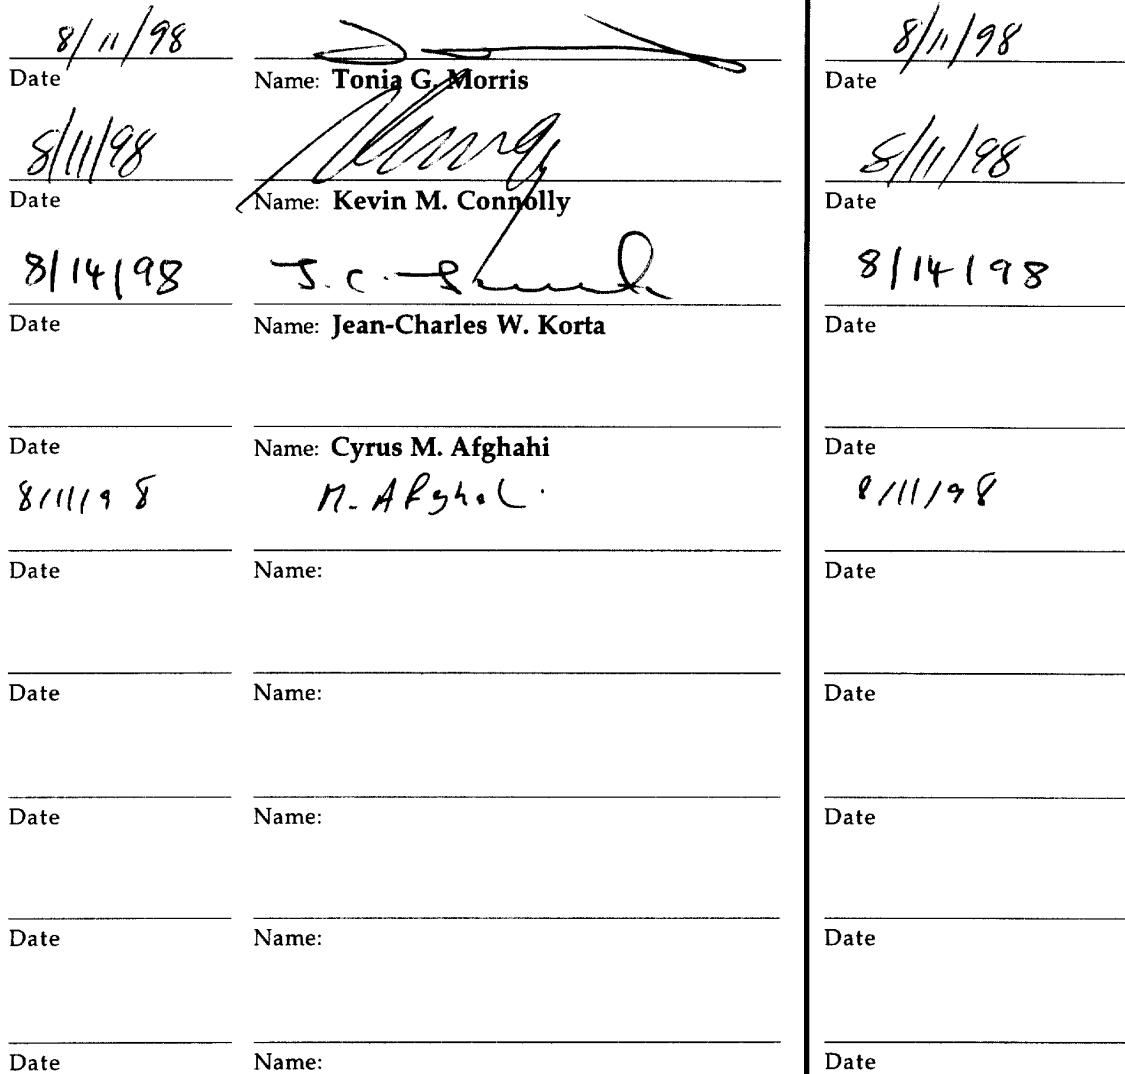 8/11/98 8/11/98
Date Name: Tonia G. Morris Date
8/11/98 8/11/98
Date Name: Kevin M. Connolly Date
8/14/98 J.C. 8/14/98
Date Name: Jean-Charles W. Korta Date
Date Name: Cyrus M. Afghahi Date
8/11/98 M. Afghahi 8/11/98
Date Name: Date
Date Name: Date
Date Name: Date
Date Name: Date
Date Name: Date